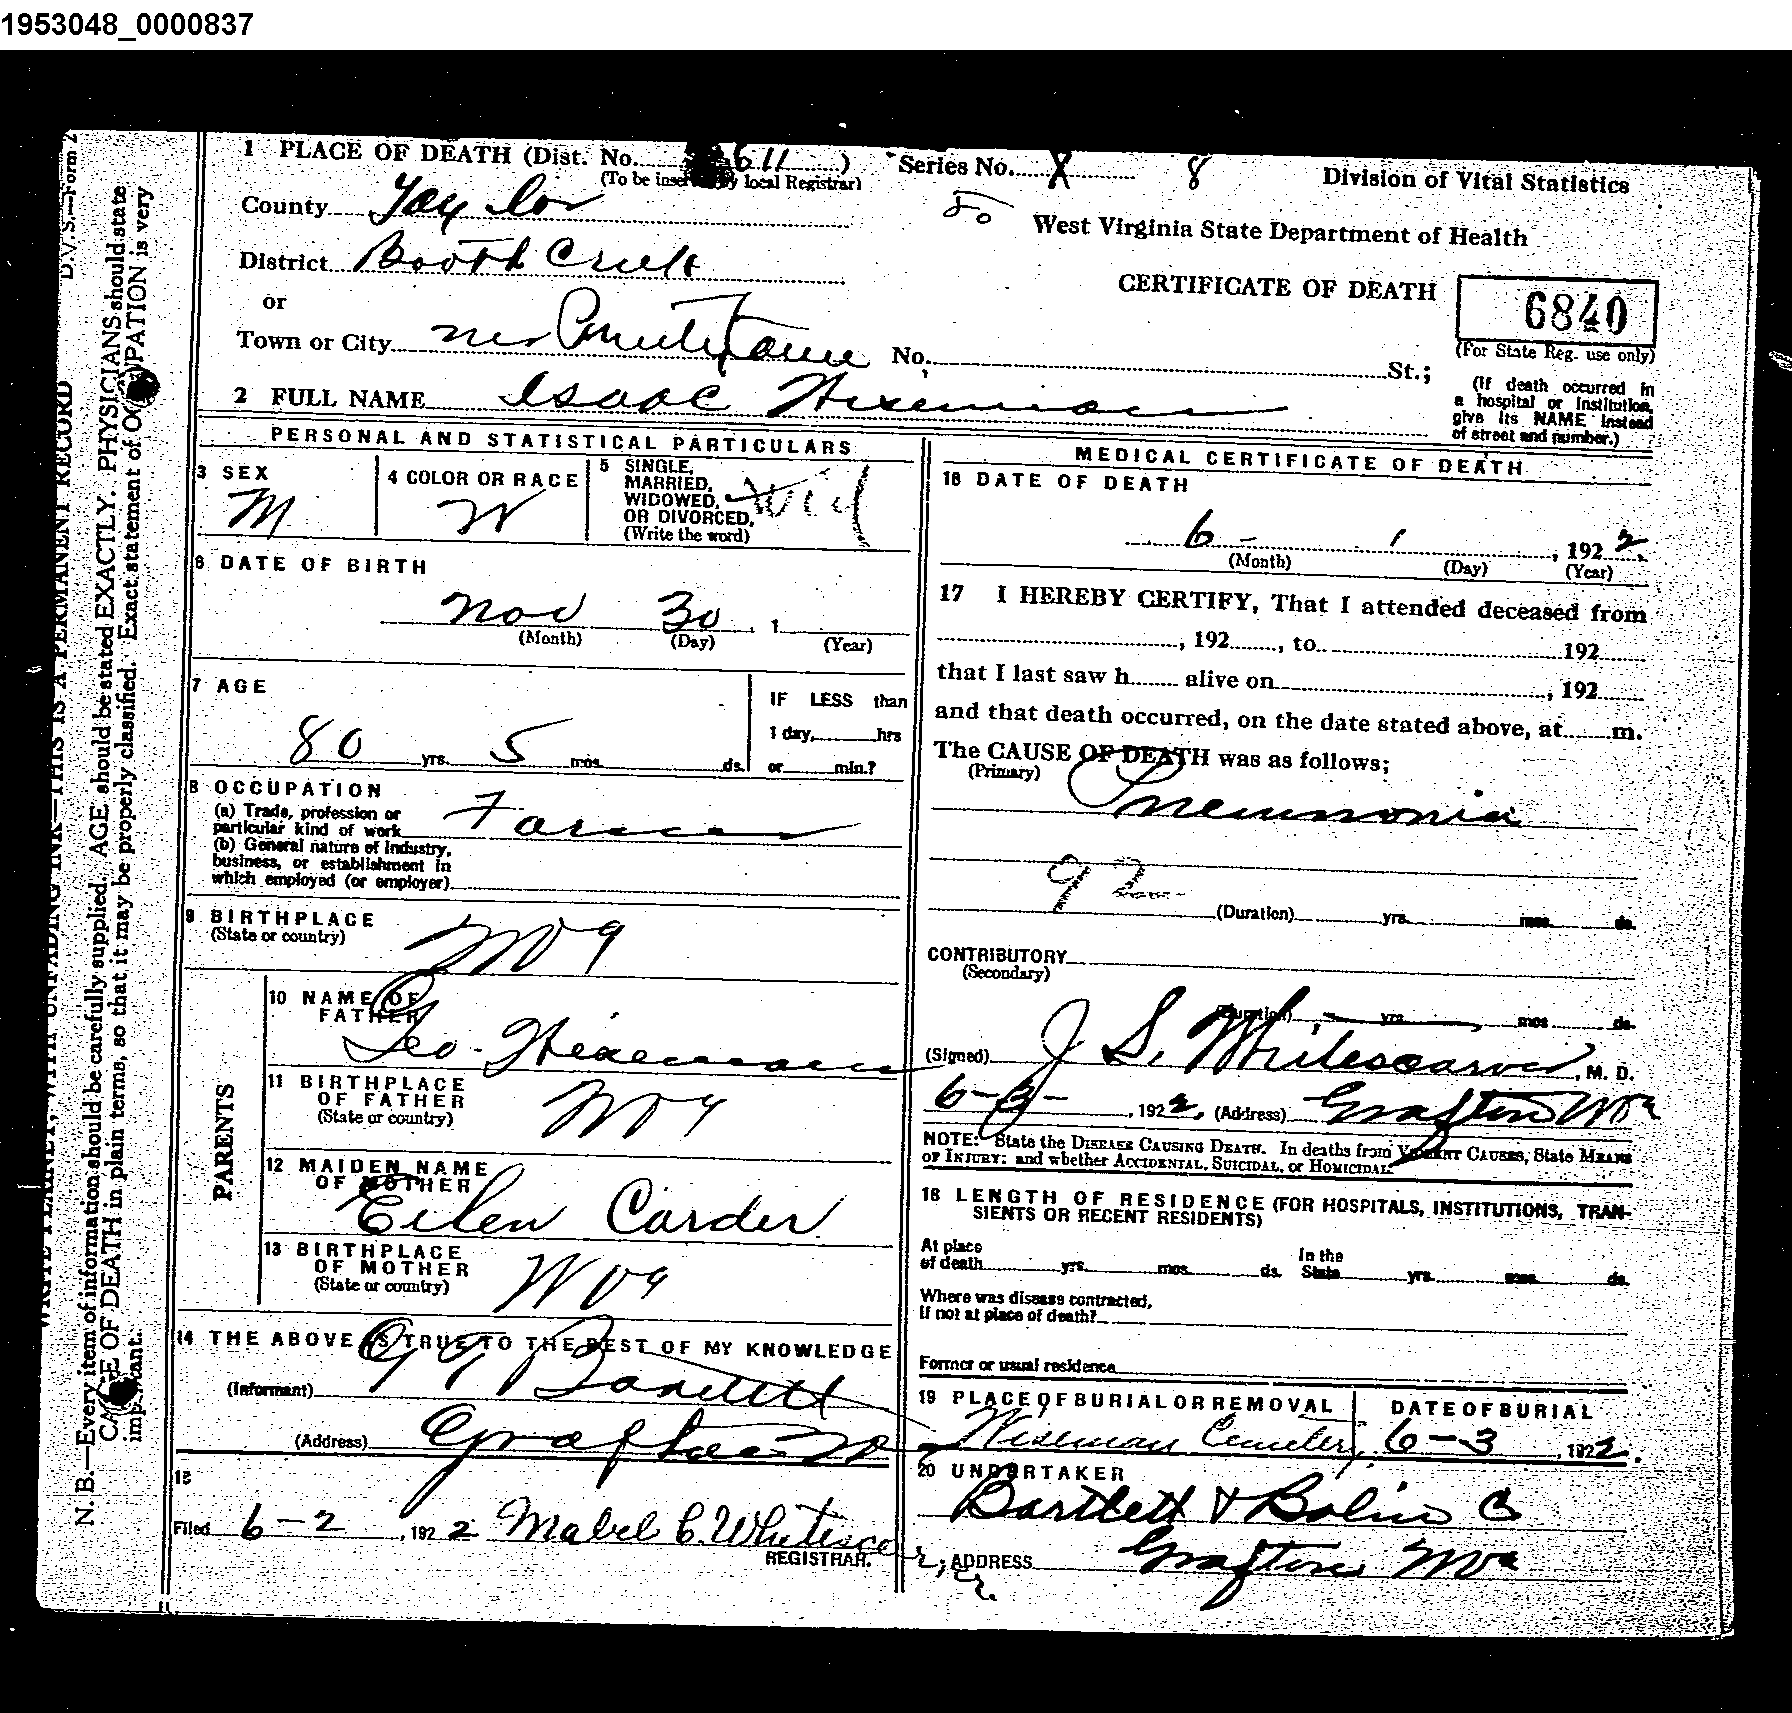 1953048_0000837
D.V.S.—Form 2
WRITE PLAINLY, WITH UNFADING INK—THIS IS A PERMANENT RECORD
N. B.—Every item of information should be carefully supplied. AGE should be stated EXACTLY. PHYSICIANS should state
CAUSE OF DEATH in plain terms, so that it may be properly classified. Exact statement of OCCUPATION is very
important.
1 PLACE OF DEATH (Dist. No. 611 )
(To be inserted by local Registrar)
Series No. X 8
Division of Vital Statistics
County Taylor
80
West Virginia State Department of Health
District Booth Creek
CERTIFICATE OF DEATH
6840
(For State Reg. use only)
or
Town or City No. St.;
(If death occurred in
a hospital or institution,
give its NAME instead
of street and number.)
2 FULL NAME Isaac Wiseman
PERSONAL AND STATISTICAL PARTICULARS
3 SEX
M
4 COLOR OR RACE
W
5 SINGLE,
MARRIED,
WIDOWED,
OR DIVORCED,
(Write the word)
Wid
6 DATE OF BIRTH
Nov 30, 1
(Month) (Day) (Year)
7 AGE
80 yrs. 5 mos. ds.
IF LESS than
1 day, hrs
or min.?
8 OCCUPATION
(a) Trade, profession or
particular kind of work Farmer
(b) General nature of Industry,
business, or establishment in
which employed (or employer)
9 BIRTHPLACE
(State or country)
W Va
PARENTS
10 NAME OF
FATHER
Geo. Wiseman
11 BIRTHPLACE
OF FATHER
(State or country)
W Va
12 MAIDEN NAME
OF MOTHER
Eilen Carder
13 BIRTHPLACE
OF MOTHER
(State or country)
W Va
14 THE ABOVE IS TRUE TO THE BEST OF MY KNOWLEDGE
(Informant)
(Address) Grafton W
15
Filed 6-2, 1922 Mabel C. Whitescarver
REGISTRAR.
MEDICAL CERTIFICATE OF DEATH
16 DATE OF DEATH
6- 1, 1922.
(Month) (Day) (Year)
17 I HEREBY CERTIFY, That I attended deceased from
, 192 , to 192
that I last saw h alive on , 192
and that death occurred, on the date stated above, at m.
The CAUSE OF DEATH was as follows;
(Primary)
Pneumonia
92
(Duration) yrs. mos. ds.
CONTRIBUTORY
(Secondary)
(Duration) yrs. mos. ds.
(Signed) J S. Whitescarver, M. D.
6-3-, 1922, (Address) Grafton W Va
NOTE: State the DISEASE CAUSING DEATH. In deaths from VIOLENT CAUSES, State MEANS
OF INJURY; and whether ACCIDENTAL, SUICIDAL, or HOMICIDAL
18 LENGTH OF RESIDENCE (FOR HOSPITALS, INSTITUTIONS, TRAN-
SIENTS OR RECENT RESIDENTS)
At place
of death yrs. mos. ds.
In the
State yrs. mos. ds.
Where was disease contracted,
if not at place of death?
Former or usual residence
19 PLACE OF BURIAL OR REMOVAL
Wiseman Cemetery
DATE OF BURIAL
6-3, 1922.
20 UNDERTAKER
Bartlett & Bolin
ADDRESS Grafton W Va